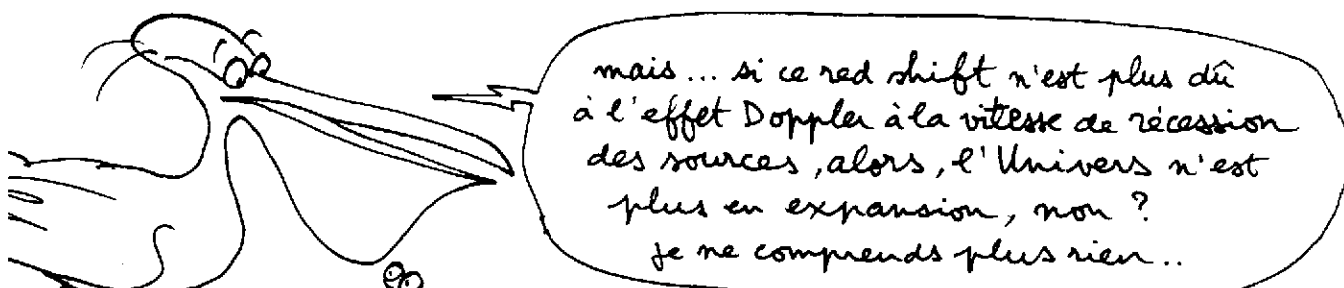 mais... si ce red shift n'est plus dû
à l'effet Doppler à la vitesse de récession
des sources, alors, l'Univers n'est
plus en expansion, non ?
je ne comprends plus rien..